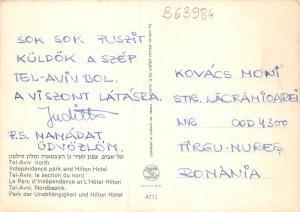 B63984
SOK SOK PUSZIT
KÜLDÖK A SZÉP
TEL-AVIV BOL.
A VISZONT LÁTÁSRA.
Juditta
P.S. MAMÁDAT
ÜDVÖZLÖM.
תל-אביב, צפון העיר גן העצמאות ומלון הילטון
Tel-Aviv north
Independence park and Hilton Hotel
Tel-Aviv, la section du nord
Le Parc d'Indépendance et L'Hôtel Hilton
Tel-Aviv, Nordbezirk.
Park der Unabhängigkeit und Hilton Hotel
4711
KOVÁCS MONI
STR. LĂCRĂMIOAREI
NR 00D4300
TÎRGU-MUREȘ
ROMÂNIA